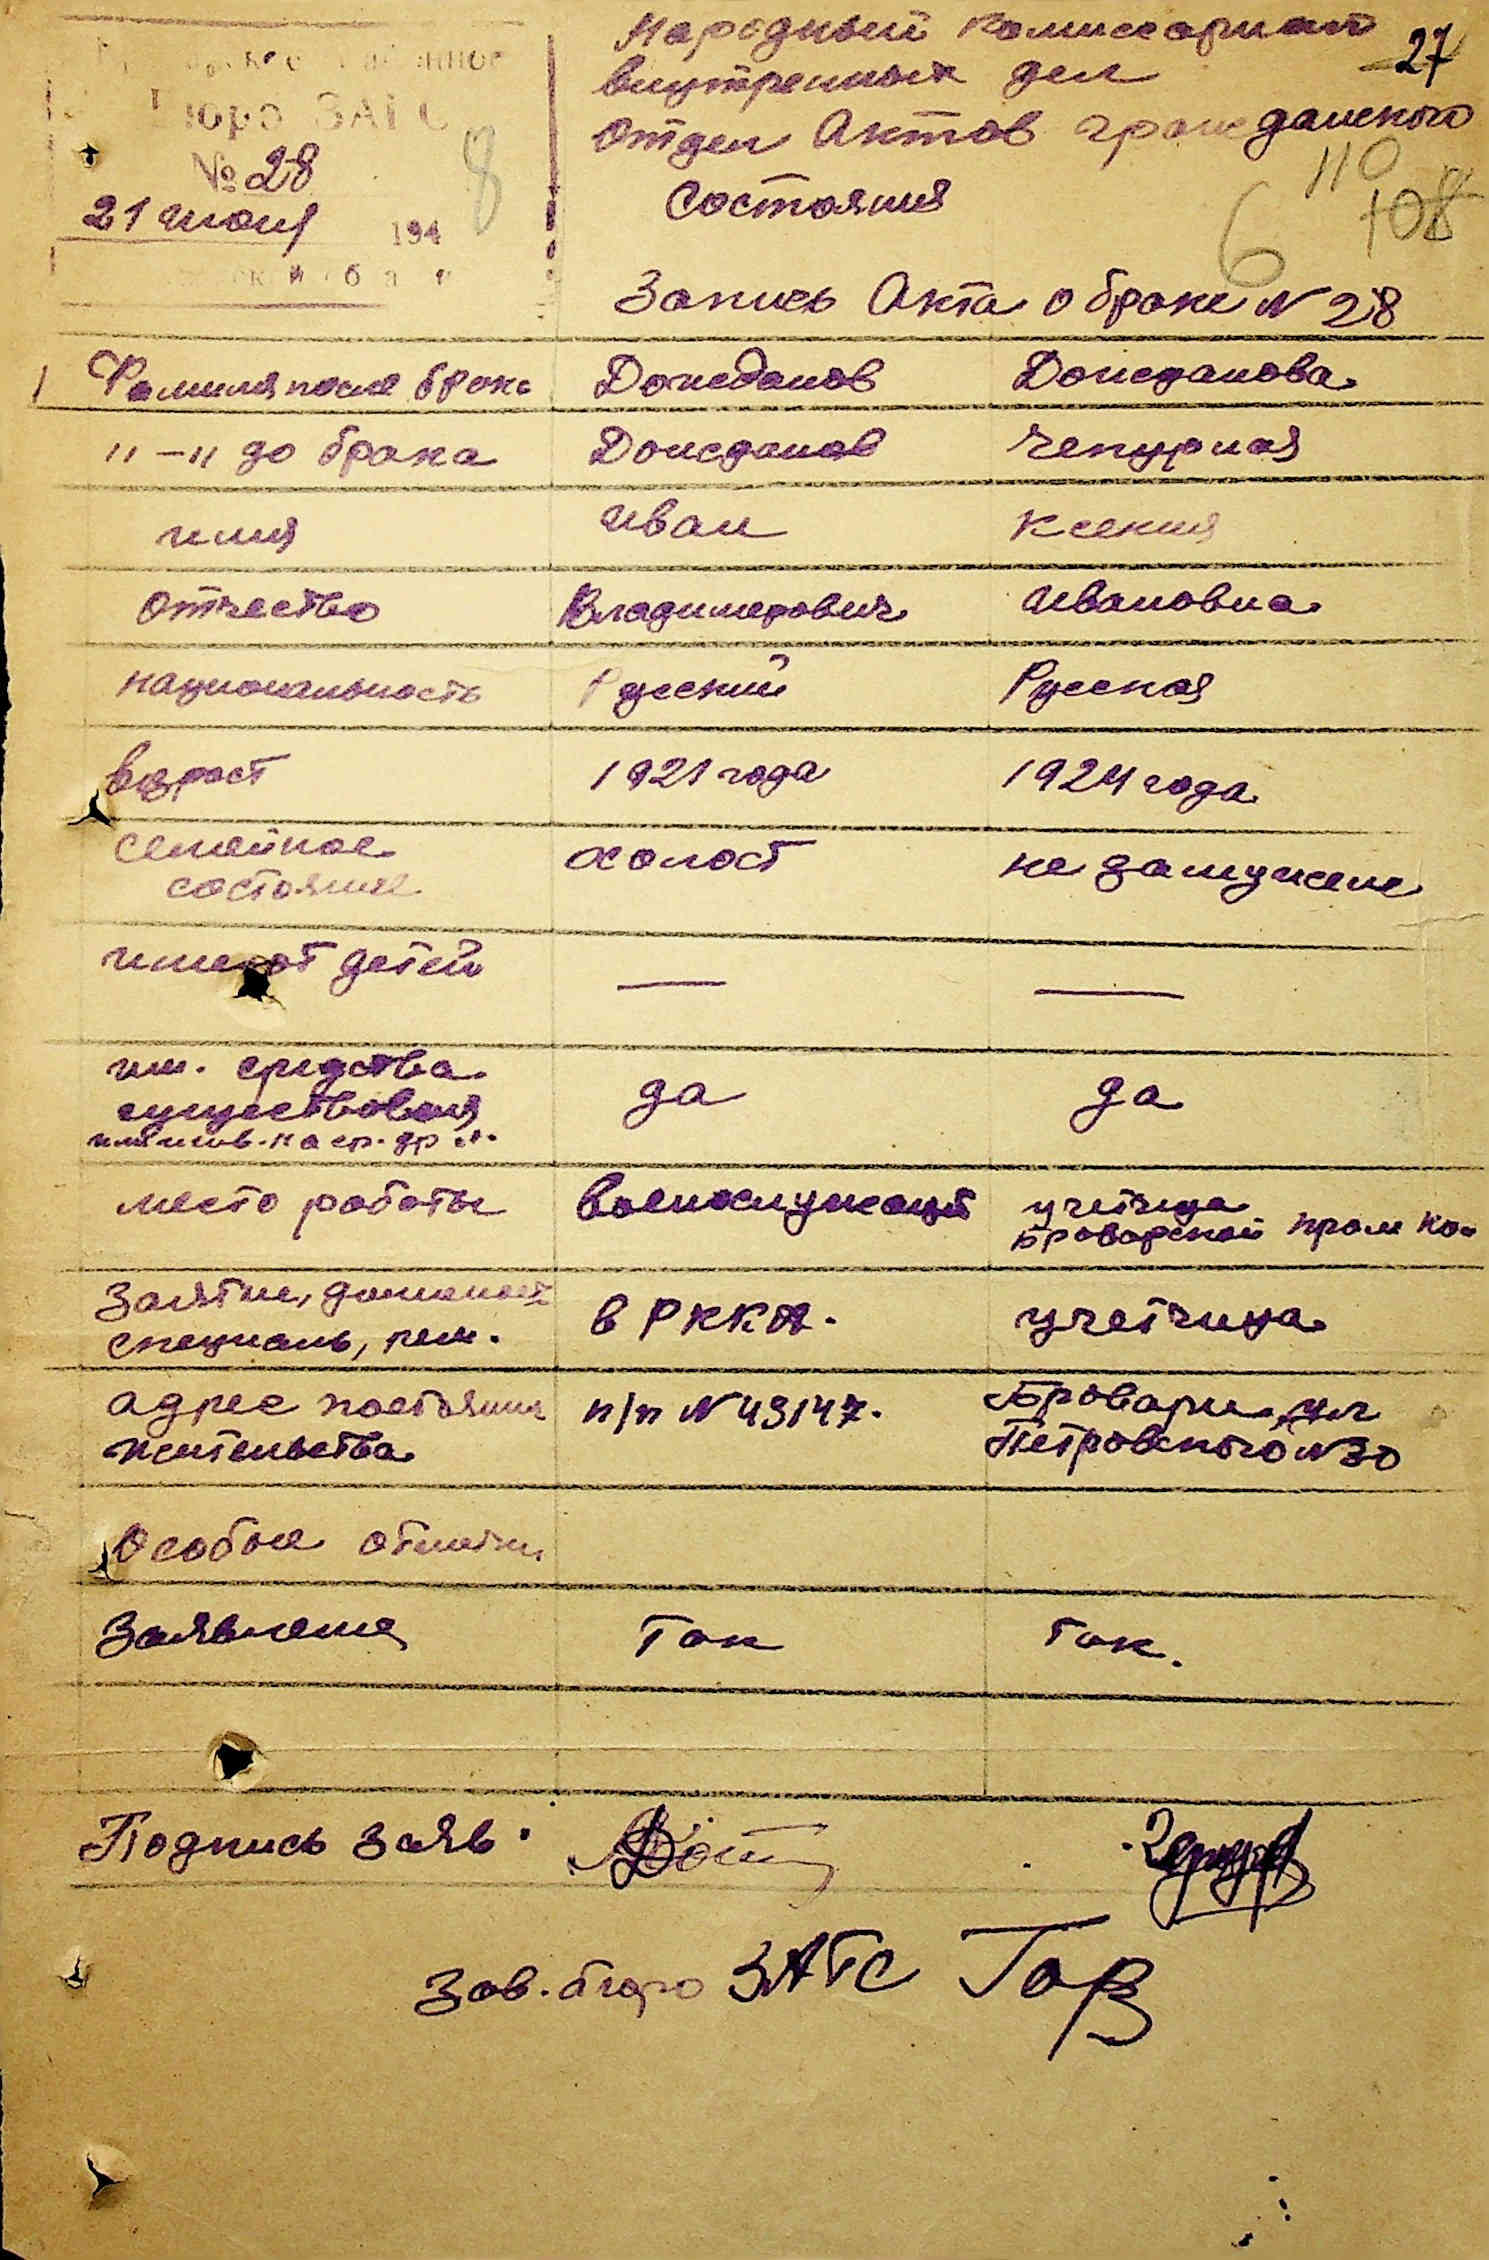 Бюро ЗАГС
№ 28
21 июня 194
8
Народный Комиссариат
27
внутренних дел
Отдел Актов гражданского
состояния
110
108
6
Запись Акта о браке № 28
1 Фамилия после брака Дожданов Дожданова
"-" до брака Дожданов Чепурная
имя Иван Ксения
отчество Владимерович Ивановна
национальность Русский Русская
возраст 1921 года 1924 года
семейное состояние холост не замужем
имеют детей — —
им. средства
существования да да
место работы военнослужащий учетчица
Броварской пром ком
Занятие, должность
специаль, рем. в РККА. учетчица
адрес постоянн
жительства п/п N 43147. Бровары ул
Петровского N 30
Особые отметки
Заявление Так Так.
Подпись заяв.
Зав. бюро ЗАГС